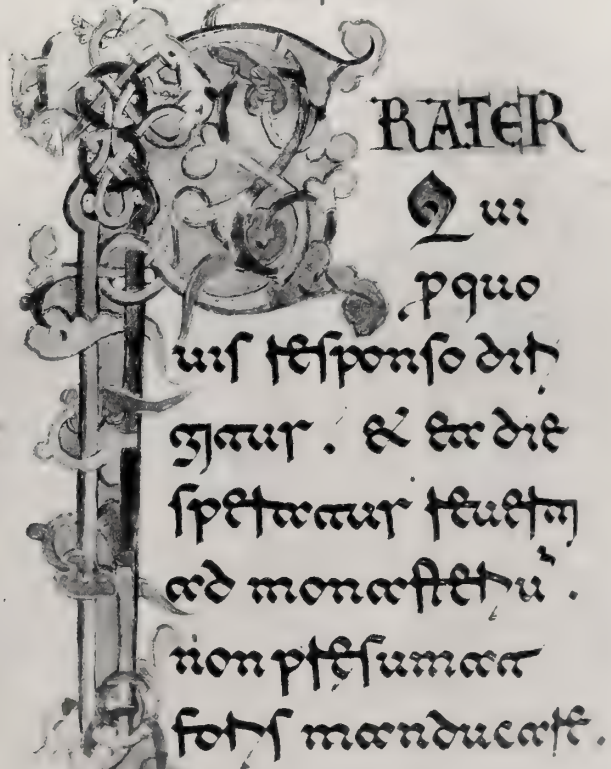 FRATER
Qui
pquo
uis responso diri
gitur . & ea die
speratur reuerti
ad monasteriu .
non presumat
foris manducare .